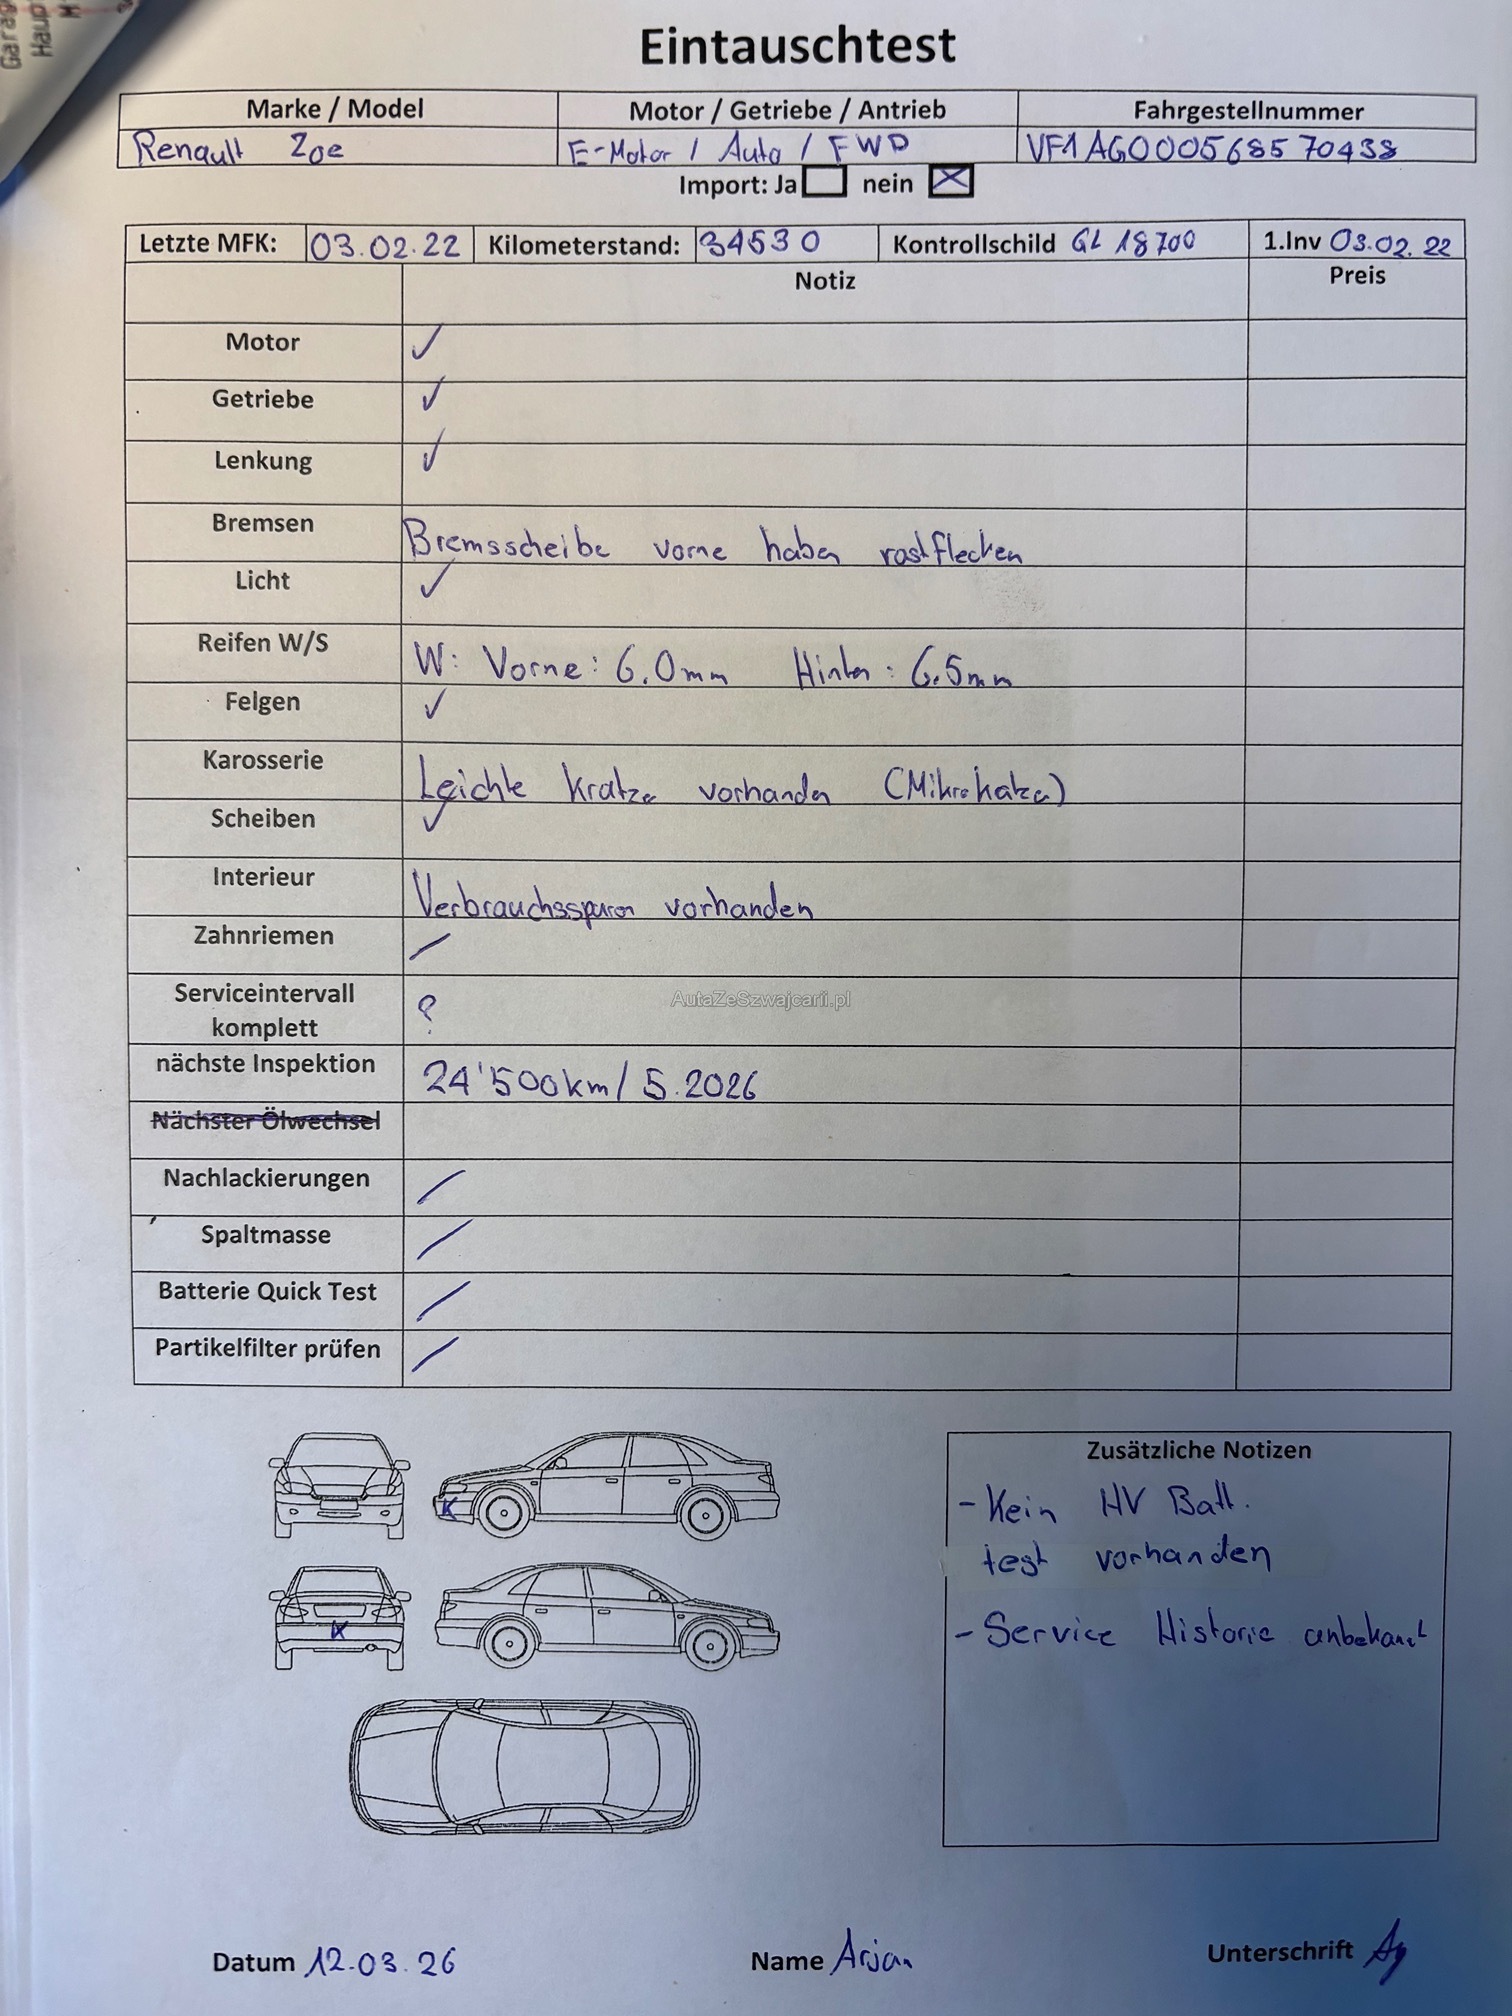 Garag
Haup
M
Eintauschtest
Marke / Model Motor / Getriebe / Antrieb Fahrgestellnummer
Renault Zoe E-Motor / Auto / FWD VF1AG000568570438
Import: Ja nein
Letzte MFK: 03.02.22 Kilometerstand: 34530 Kontrollschild GL 18700 1.Inv 03.02.22
Notiz Preis
Motor ✓
Getriebe ✓
Lenkung ✓
Bremsen Bremsscheibe vorne haben rostflecken
Licht ✓
Reifen W/S W: Vorne: 6.0mm Hinten: 6.5mm
Felgen ✓
Karosserie Leichte Kratzer vorhanden
Scheiben ✓
Interieur Verbrauchsspuren vorhanden
Zahnriemen /
Serviceintervall
komplett ?
nächste Inspektion 24'500km / 5.2026
Nächster Ölwechsel
Nachlackierungen /
Spaltmasse /
Batterie Quick Test /
Partikelfilter prüfen /
AutaZeSzwajcarii.pl
K
K
Zusätzliche Notizen
- Kein HV Batt.
test vorhanden
- Service Historie unbekannt
Datum 12.03.26 Name Arjan Unterschrift